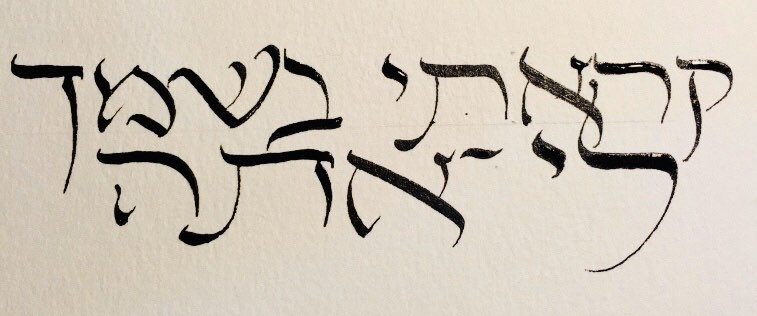 קראתי בשמך
לי־אתה